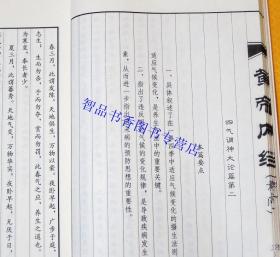 黄帝内经
四气调神大论篇第二
本篇要点
一、具体叙述了在季中适应气候变化的摄生法则
适应气候变化，是养生中的重要关键。
二、指出了违反气候的变化规律，是导致疾病发生
素，从而进一步指病的预防思想的重要性。
春三月，此谓发陈，天地俱生，万物以荣，夜卧早起，广步于庭，
志生，生而勿杀，予而勿夺，赏而勿罚，此春气之应，养生之道也。
为寒变，奉长者少。
夏三月，此谓蕃秀，天地气交，万物华实，夜卧早起，无厌于日，
智品书香图书专营店